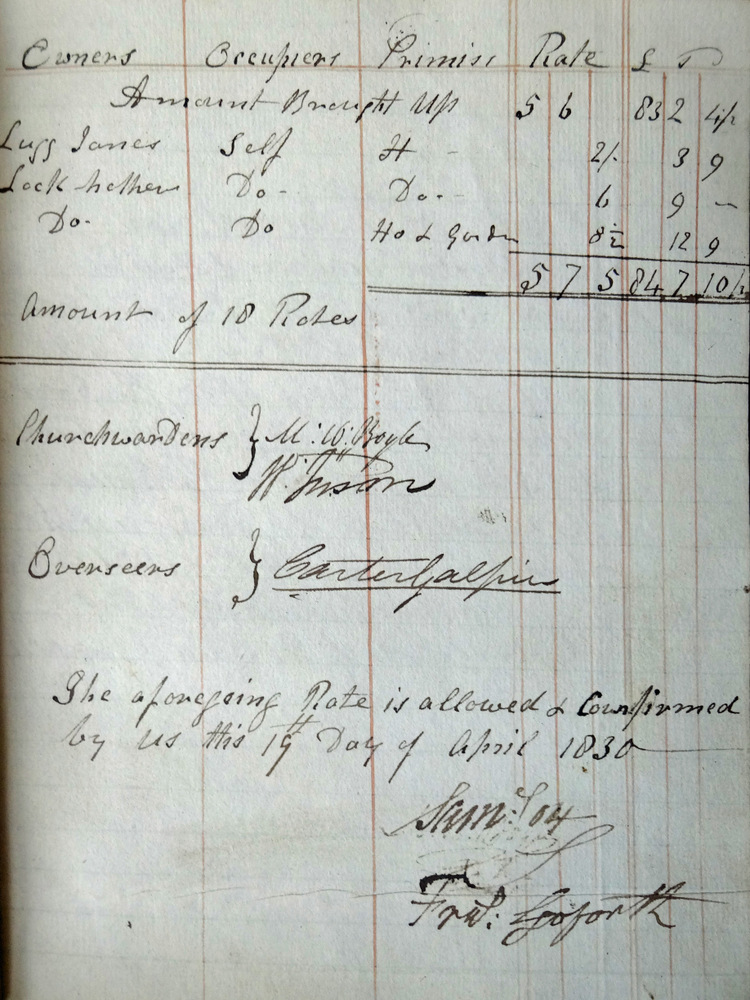 Owners Occupiers Primiss Rate £ s
Amount Brought Up 5 6 83 2 4½
Lugg James Self H - 2/. 3 9
Lock Do - Do. - 6 9 -
Do- Do Ho & Garden 8½ 12 9
5 7 5 84 7 10½
Amount of 18 Rates
Churchwardens } M: W: Boyle
W:
Overseers } Carter Galpin
The aforegoing Rate is allowed & Confirmed
by us this 19th Day of April 1830
Saml.
Fras: Goforth